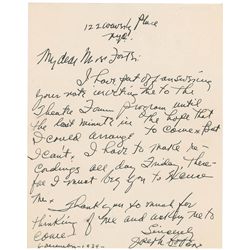 122 Waverly Place
N.Y.C.
My dear Miss
I have put off answering
your note inviting me to the
Theatre Program until
the last minute in the hope that
I could arrange to come but
I can't. I have to make re-
cordings all day Friday. There-
fore I must beg you to excuse
me.
Thank you so much for
thinking of me and asking me to
come.
Sincerely
Joseph